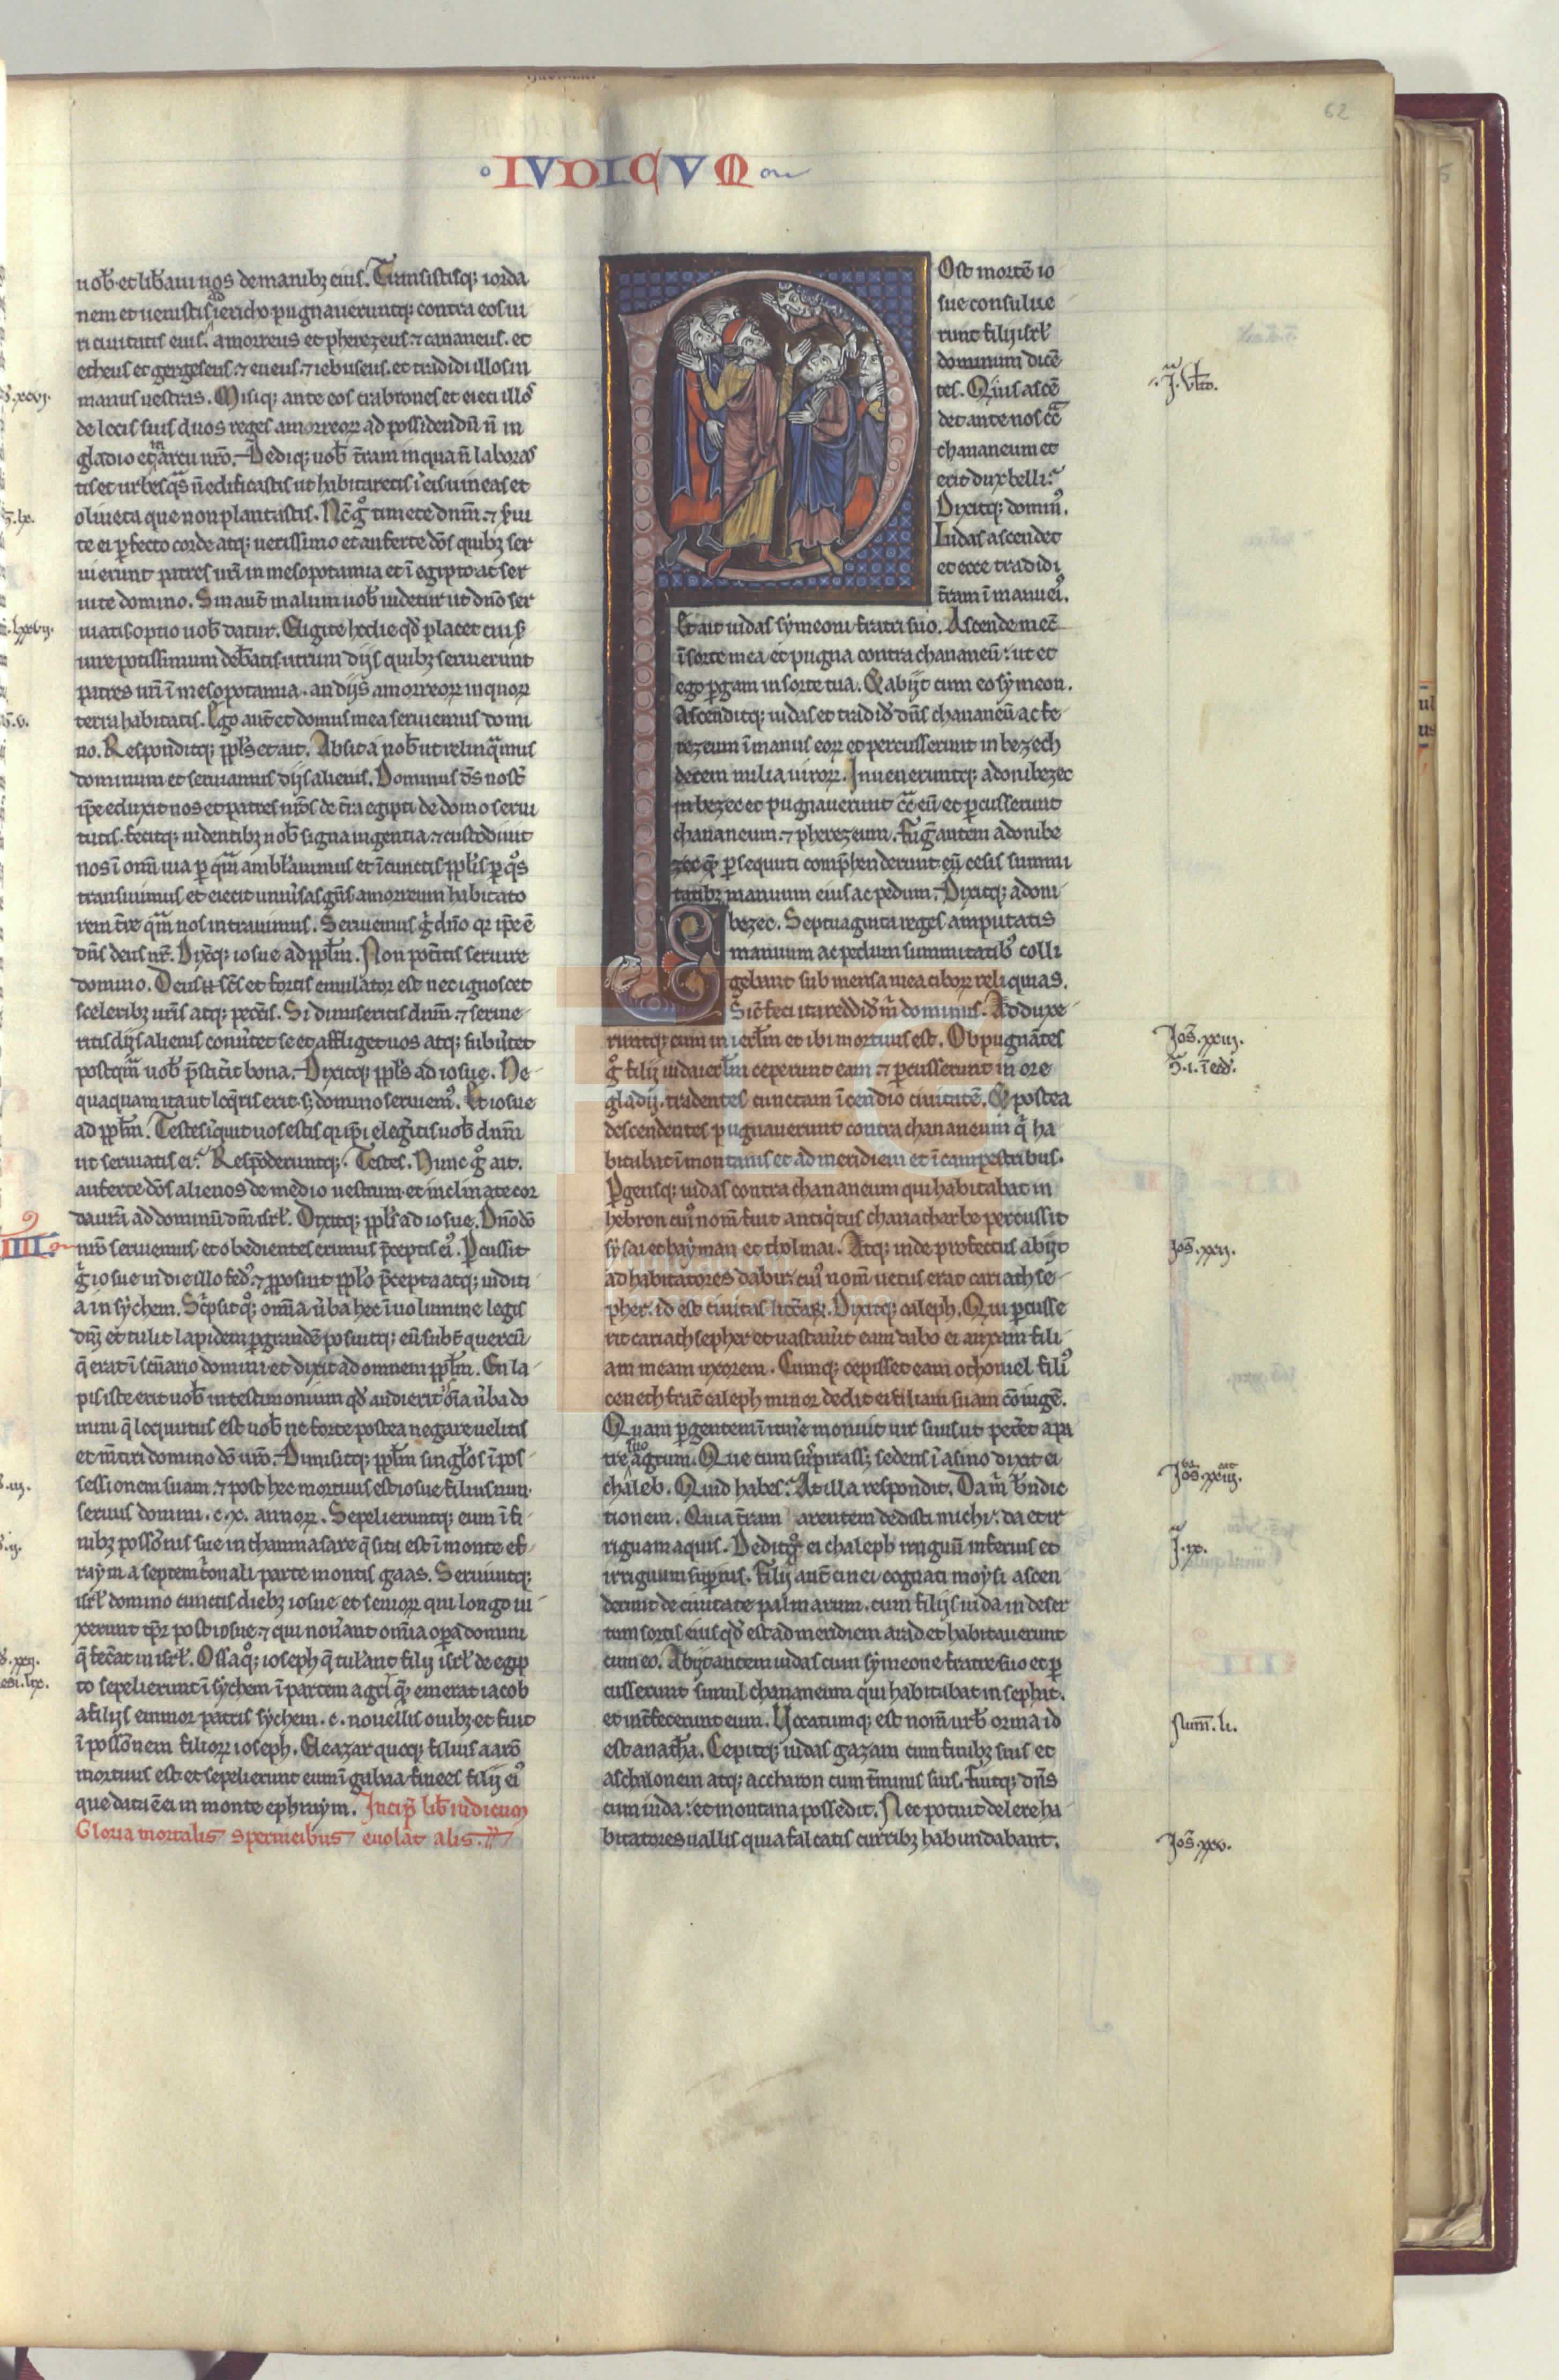 62
IVDICVM
uob̄ et lib̄aui uos de manibȝ eius. Transistisqȝ iorda
nem et uenistis ad iericho pugnaueruntqȝ contra eos ui
ri ciuitatis eius. amorreus et pherezeus. ⁊ cananeus. et
etheus et gergeseus. ⁊ eueus. ⁊ iebuseus. et tradidi illos in
manus uestras. Misiqȝ ante eos crabrones et eieci illos
de locis suis duos reges amorreoꝝ ad possidendū n̄ in
gladio et in arcu ur̄o. Dediqȝ uob̄ t̄ram in qua n̄ laboras
tis et urbes q̄s n̄ edificastis ut habitaretis ī eis uineas et
oliueta que non plantastis. Nc̄ g° timete dn̄m. ⁊ s̄ui
te ei ꝑfecto corde atqȝ uerissimo et auferte dōs quibȝ ser
uierunt patres ur̄i in mesopotamia et ī egipto ac ser
uite domino. Sin aut̄ malum uob̄ uidetur ut dn̄o ser
uiatis optio uob̄ datur. Eligite hodie qd̄ placet cui s̄
uire potissimum deb̄atis utrum dijs quibȝ seruierunt
patres ur̄i ī mesopotamia. an dijs amorreoꝝ in quoꝝ
terra habitatis. Ego aut̄ et domus mea seruiemus domi
no. Responditqȝ ppl̄s et ait. Absit a nob̄ ut relinq̄mus
dominum et seruiamus dijs alienis. Dominus d̄s nost̄
ip̄e eduxit nos et patres nr̄os de t̄ra egipti de domo serui
tutis. fecitqȝ uidentibȝ nob̄ signa ingentia. ⁊ custodiuit
nos ī omī uia ꝑ q̄m ambl̄auimus et ī cunctis ppl̄is ꝑ q°s
transiuimus et eiecit uniu̓sas gn̄s amorreum habitato
rem t̄re q̄m nos intrauimus. Seruiemus g̓ dn̄o qꝛ ip̄e ē
dn̄s deus nr̄. Dix̄qȝ iosue ad ppl̄m. Non pot̄itis seruire
domino. Deus n̄ sc̄s et fortis emulator est nec ignoscet
sceleribȝ ur̄is atqȝ pecc̄is. Si dimiseritis dn̄m. ⁊ serue
ritis dijs alienis conu̓tet se et affliget uos atqȝ subu̓tet
postq̄m uob̄ p̄stit̓it bona. Dixitqȝ ppl̄s ad iosue. Ne
quaquam ita ut loq̓ris erit sȝ domino seruiem°. Et iosue
ad ppl̄m. Testes īquit uos estis qꝛ ip̄i eleg̓itis uob̄ dn̄m
ut seruiatis ei. Respōderuntqȝ. Testes. Nunc g° ait.
auferte dōs alienos de medio uestrum et inclinate cor
da ur̄a ad dominū dm̄ isr̄l. Dixitqȝ ppl̄s ad iosue. Dn̄o dō
nr̄o seruiemus et obedientes erimus p̄ceptis ei°. Pcussit
g̓ iosue in die illo fed°. ⁊ ꝓposuit ppl̄o p̄cepta atqȝ iudici
a in sychem. Sc̓psitqȝ omīa u̓ba hec ī uolumine legis
dn̄j et tulit lapidem ꝑgrandē posuitqȝ eū subt̄ quercū
q̄ erat ī sc̄uario domini et dixit ad omnem ppl̄m. En la
pis iste erit uob̄ in testimonium qd̄ audierit oīa u̓ba do
mini q̄ locutus est uob̄ ne forte postea negare uelitis
et mn̄tiri domino dō ur̄o. Dimisitqȝ ppl̄m singl̄os ī pos
sessionem suam. ⁊ post hec mortuus est iosue filius nun
seruus domini. c.x. annoꝝ. Sepelieruntqȝ eum ī fi
nibȝ poss̄onis sue in thamnasare q̄ sita est ī monte ef
raym a septemt̓onali parte montis gaas. Seruiuitqȝ
isr̄l domino cunctis diebȝ iosue et senioꝝ qui longo ui
xerunt tp̄r post iosue. ⁊ qui nou̓ant omīa oꝑa domini
q̄ fec̄at in isr̄l. Ossa qȝ ioseph q̄ tul̓ant filij isr̄l de egip
to sepelierunt ī sychem ī partem agri q̄m emerat iacob
a filijs emmor patris sychem. c. nouellis ouibȝ et fuit
ī poss̄onem filioꝝ ioseph. Eleazar quoqȝ filius aarō
mortuus est et sepelierunt eum ī gabaa finees filij ei°
que data ē ei in monte ephraym. Incip̄ lib̄ iudicum
Gloria mortalis spernicibus euolat alis.
IIII.
Ost mortē io
sue consulue
runt filij isr̄l
dominum dicē
tes. Quis ascē
det ante nos cc̄
chananeum et
erit dux belli?
Dixitqȝ domin°.
Iudas ascendet
et ecce tradidi
t̄ram ī manu ei°.
Et ait iudas symeoni fratri suo. Ascende mec̄
ī sorte mea et pugna contra chananeū. ut et
ego ꝑgam in sorte tua. Et abijt cum eo symeon.
Ascenditqȝ iudas et tradid̄ dn̄s chananeū ac fe
rezeum ī manus eoꝝ et percusserunt in bezech
decem milia uiroꝝ. Inueneruntqȝ adonibezec
in bezec et pugnauerunt cc̄ eū et ꝑcusserunt
chananeum. ⁊ pherezeum. Fug̓ autem adonibe
zec q̄m ꝑsequuti comp̄henderunt eū cesis summi
tatibȝ manuum eius ac pedum. Dixitqȝ adoni
bezec. Septuaginta reges amputatis
manuum ac pedum summitatib° colli
gebant sub mensa mea ciboꝝ reliquias.
Sic̄ feci ita reddid̄ m̓ dominus. Adduxe
runtqȝ eum in ierl̄m et ibi mortuus est. Obpugnātes
g° filij iuda ierl̄m ceperunt eam. ⁊ ꝑcusserunt in ore
gladij. tradentes cunctam īcendio ciuitatē. Et postea
descendentes pugnauerunt contra chananeum q̓ ha
bitabat ī montanis et ad meridiem et ī campestribus.
Pgensqȝ iudas contra chananeum qui habitabat in
hebron cui° nom̄ fuit antiq̓tus chariatharbe percussit
sysai et hayman et tholmai. Atqȝ inde profectus abijt
ad habitatores dabir. cui° nom̄ uetus erat cariath se
pher. id est ciuitas litt̄aꝝ. Dixitqȝ caleph. Qui ꝑcusse
rit cariath sepher et uastau̓it eam dabo ei axam fili
am meam uxorem. Cumqȝ cepisset eam othoniel fili°
cenech frat̄ caleph minor dedit ei filiam suam cōiugē.
Quam ꝑgentem ī itin̓e monuit uir suus ut pet̓et a pa
tre suo agrum. Que cum susp̓rassȝ sedens ī asino dixit ei
chaleb. Quid habes? At illa respondit. Da m̓ bn̄dic
tionem. Quia t̄ram arentem dedisti michi. da et ir
riguam aquis. Deditqȝ ei chaleph irriguū inferius et
irriguum suꝑius. Filij aut̄ cinei cognati moysi ascen
derunt de ciuitate palmarum. cum filijs iuda in deser
tum sortis eius qd̄ est ad meridiem arad. et habitauerunt
cum eo. Abijt autem iudas cum symeone fratre suo et ꝑ
cusserunt simul chananeum qui habitabat in sephat.
et int̄fecerunt eum. Vocatumqȝ est nom̄ urb̄ orma id
est anath̄a. Cepitqȝ iudas gazam cum finibȝ suis et
aschalonem atqȝ accharon cum t̄minis suis. Fuitqȝ dn̄s
cum iuda. et montana possedit. Nec potuit delere ha
bitatores uallis quia falcatis curribȝ habundabant.
Jos̄. xxiij.
J. ix.
Num̄. li.
Jos̄. xxv.